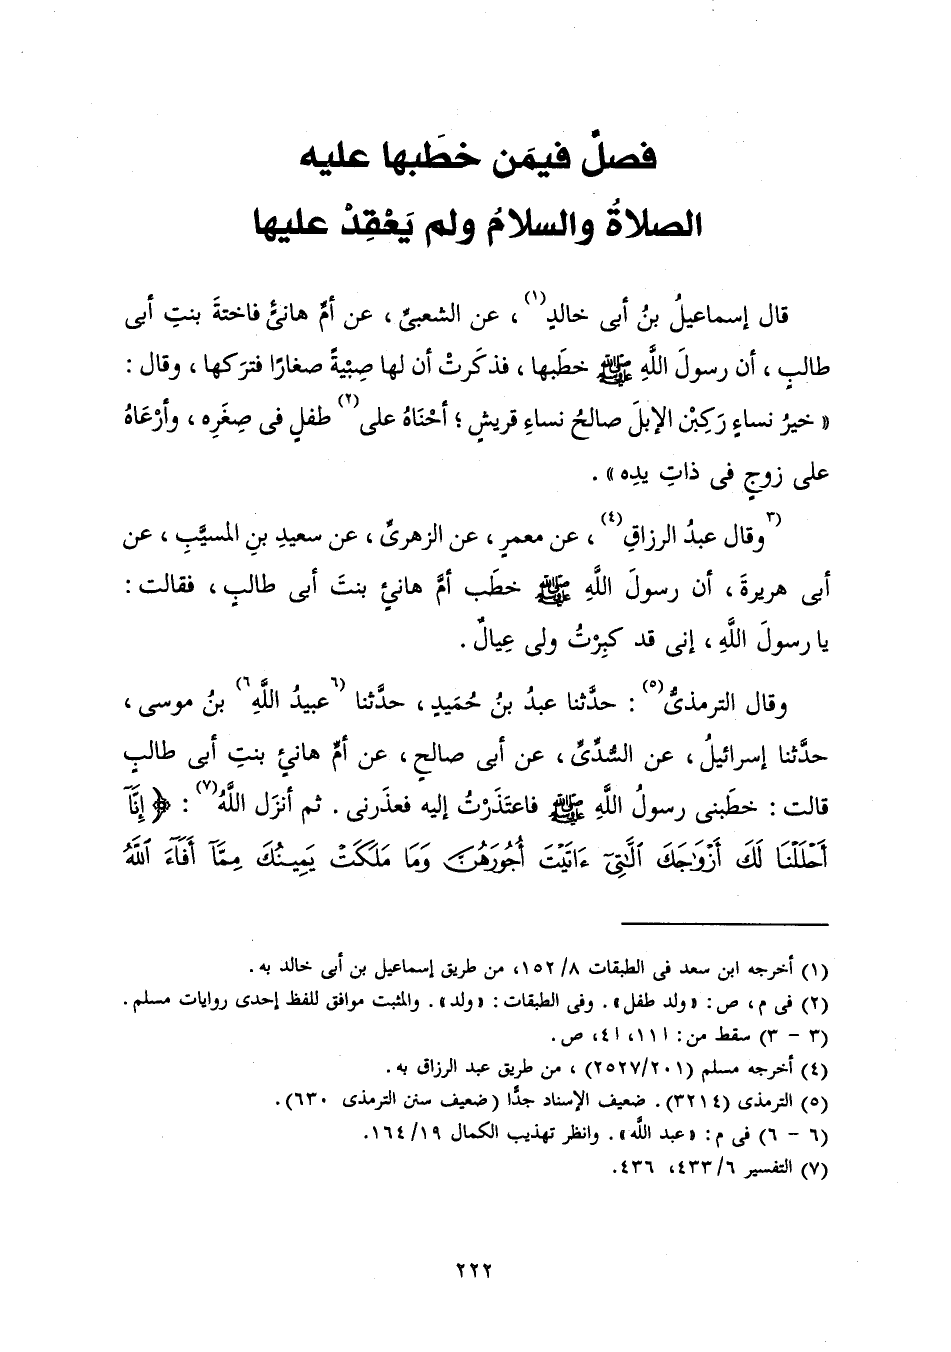 فصلٌ فيمَن خطَبها عليه
الصلاةُ والسلامُ ولم يَعْقِدْ عليها
قال إسماعيلُ بنُ أبى خالدٍ(١)، عن الشعبىِّ، عن أمِّ هانئٍ فاختةَ بنتِ أبى
طالبٍ، أن رسولَ اللَّهِ ﷺ خطَبها، فذكَرتْ أن لها صِبْيةً صغارًا فترَكها، وقال:
«خيرُ نساءٍ رَكِبْن الإبلَ صالحُ نساءِ قريشٍ؛ أحْناهُ على(٢) طفلٍ فى صِغَرِه، وأرْعَاهُ
على زوجٍ فى ذاتِ يدِه».
(٣وقال عبدُ الرزاقِ(٤)، عن معمرٍ، عن الزهرىِّ، عن سعيدِ بنِ المسيَّبِ، عن
أبى هريرةَ، أن رسولَ اللَّهِ ﷺ خطَب أمَّ هانئٍ بنتَ أبى طالبٍ، فقالت:
يا رسولَ اللَّهِ، إنى قد كبِرْتُ ولى عِيالٌ.
وقال الترمذىُّ(٥): حدَّثنا عبدُ بنُ حُمَيدٍ، حدَّثنا (٦عبيدُ اللَّهِ٦) بنُ موسى،
حدَّثنا إسرائيلُ، عن السُّدِّىِّ، عن أبى صالحٍ، عن أمِّ هانئٍ بنتِ أبى طالبٍ
قالت: خطَبنى رسولُ اللَّهِ ﷺ فاعتَذَرْتُ إليه فعذَرنى. ثم أنزَل اللَّهُ(٧): ﴿إِنَّآ
أَحْلَلْنَا لَكَ أَزْوَٰجَكَ ٱلَّٰتِىٓ ءَاتَيْتَ أُجُورَهُنَّ وَمَا مَلَكَتْ يَمِينُكَ مِمَّآ أَفَآءَ ٱللَّهُ
(١) أخرجه ابن سعد فى الطبقات ٨/ ١٥٢، من طريق إسماعيل بن أبى خالد به.
(٢) فى م، ص: «ولد طفل». وفى الطبقات: «ولد». والمثبت موافق للفظ إحدى روايات مسلم.
(٣ - ٣) سقط من: ا ١١، ا ٤، ص.
(٤) أخرجه مسلم (٢٥٢٧/٢٠١)، من طريق عبد الرزاق به.
(٥) الترمذى (٣٢١٤). ضعيف الإسناد جدًّا (ضعيف سنن الترمذى ٦٣٠).
(٦ - ٦) فى م: «عبد اللَّه». وانظر تهذيب الكمال ١٩/ ١٦٤.
(٧) التفسير ٦/ ٤٣٣، ٤٣٦.
٢٢٢